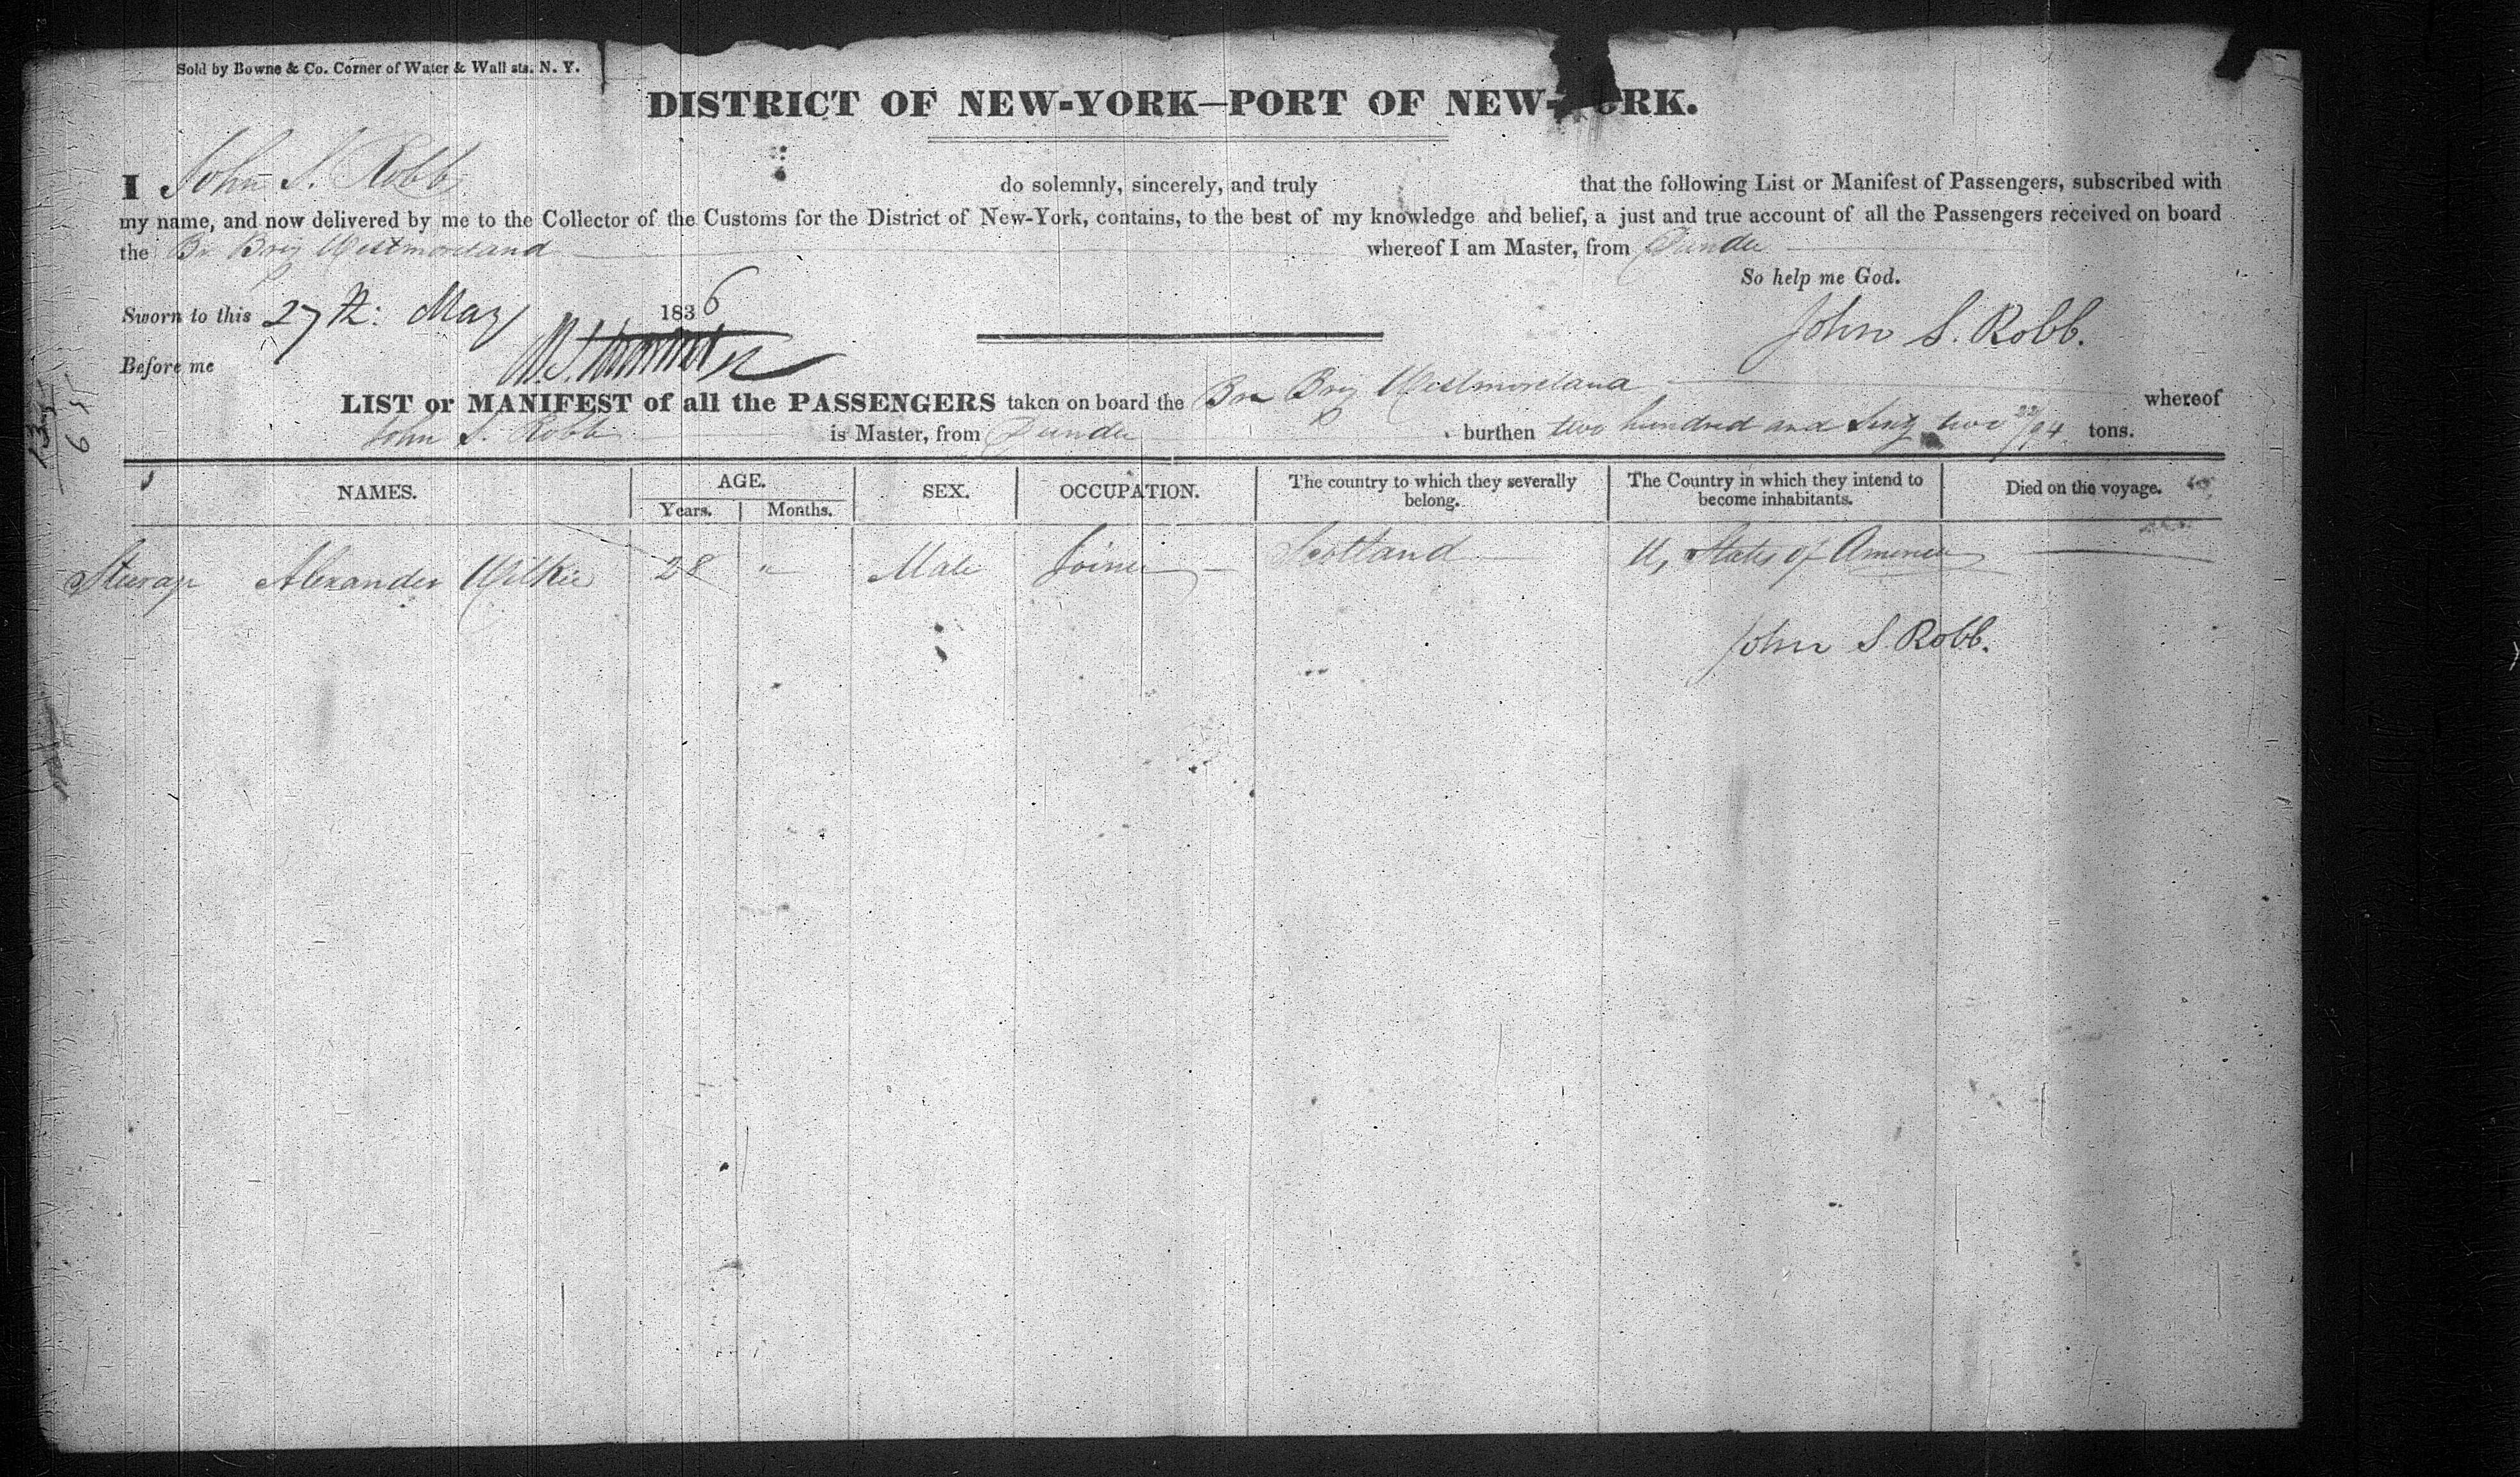 Sold by Bowne & Co. Corner of Water & Wall sts. N. Y.
DISTRICT OF NEW-YORK—PORT OF NEW-YORK.
I John S. Robb do solemnly, sincerely, and truly that the following List or Manifest of Passengers, subscribed with
my name, and now delivered by me to the Collector of the Customs for the District of New-York, contains, to the best of my knowledge and belief, a just and true account of all the Passengers received on board
the Br Brig Westmoreland whereof I am Master, from Dundee
So help me God.
Sworn to this 27th: May 1836
John S. Robb.
Before me
LIST or MANIFEST of all the PASSENGERS taken on board the Br Brig Westmoreland whereof
John S. Robb is Master, from Dundee burthen two hundred and Sixty two 22/94 tons.
NAMES. AGE. SEX. OCCUPATION. The country to which they severally belong. The Country in which they intend to become inhabitants. Died on the voyage.
Years. Months.
Steerage Alexander Wilkie 28 " Male Joiner Scotland U, States of America
John S Robb.